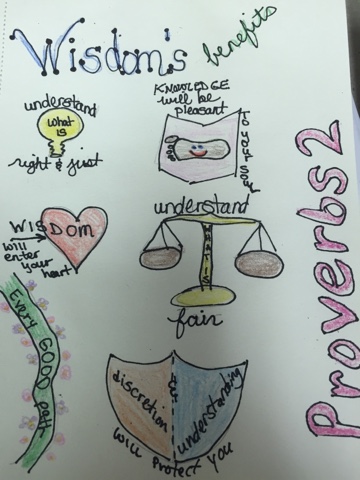 Wisdom's benefits
understand
what
is
right & just
KNOWLEDGE
will be
pleasant
to your soul
WISDOM
will
enter
your
heart
understand
WHAT IS
fair
Every GOOD path
discretion
understanding
will protect you
Proverbs 2